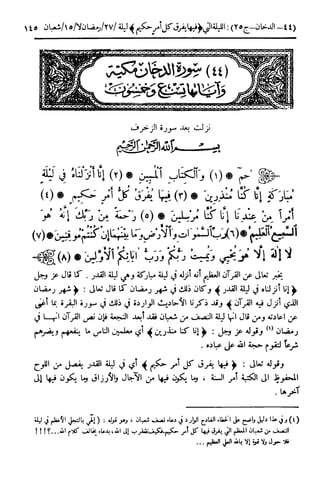 (٤٤ - الدخان - ج٢٥) : الليلة التي ﴿ فيها يفرق كل أمر حكيم ﴾ ليلة /٢٧/ رمضان لا /١٥/ شعبان ١٤٥
(٤٤) سورة الدخان مكية
وآياتها تسع وخمسون
نزلت بعد سورة الزخرف
بسم الله الرحمن الرحيم
حم * (١) والكتاب المبين * (٢) إنا أنزلناه في ليلة
مباركة إنا كنا منذرين * (٣) فيها يفرق كل أمر حكيم * (٤)
أمرا من عندنا إنا كنا مرسلين * (٥) رحمة من ربك إنه هو
السميع العليم * (٦) رب السموات والأرض وما بينهما إن كنتم موقنين * (٧)
لا إله إلا هو يحيي ويميت ربكم ورب آبائكم الأولين * (٨)
يخبر تعالى عن القرآن العظيم أنه أنزله في ليلة مباركة وهي ليلة القدر . كما قال عز وجل
﴿ إنا أنزلناه في ليلة القدر ﴾ وكان ذلك في شهر رمضان كما قال تعالى : ﴿ شهر رمضان
الذي أنزل فيه القرآن ﴾ وقد ذكرنا الأحاديث الواردة في ذلك في سورة البقرة بما أغنى
عن اعادته ومن قال انها ليلة النصف من شعبان فقد أبعد النجعة فإن نص القرآن انها في
رمضان (١) وقوله عز وجل : ﴿ إنا كنا منذرين ﴾ أي معلمين الناس ما ينفعهم ويضرهم
شرعاً لتقوم حجة الله على عباده .
وقوله تعالى : ﴿ فيها يفرق كل أمر حكيم ﴾ أي في ليلة القدر يفصل من اللوح
المحفوظ الى الكتبة أمر السنة ، وما يكون فيها من الآجال والأرزاق وما يكون فيها إلى
آخرها .
(١) وفي هذا دليل واضح على الخطاء الفادح الوارد في دعاء نصف شعبان ، وهو قوله : ( إلهي بالتجلي الأعظم في ليلة
النصف من شعبان المعظم التي يفرق فيها كل أمر حكيم فكيف يتقرب إلى الله، بدعاء يخالف كلام الله...؟!!!
فلا حول ولا قوة إلا بالله العلي العظيم ...